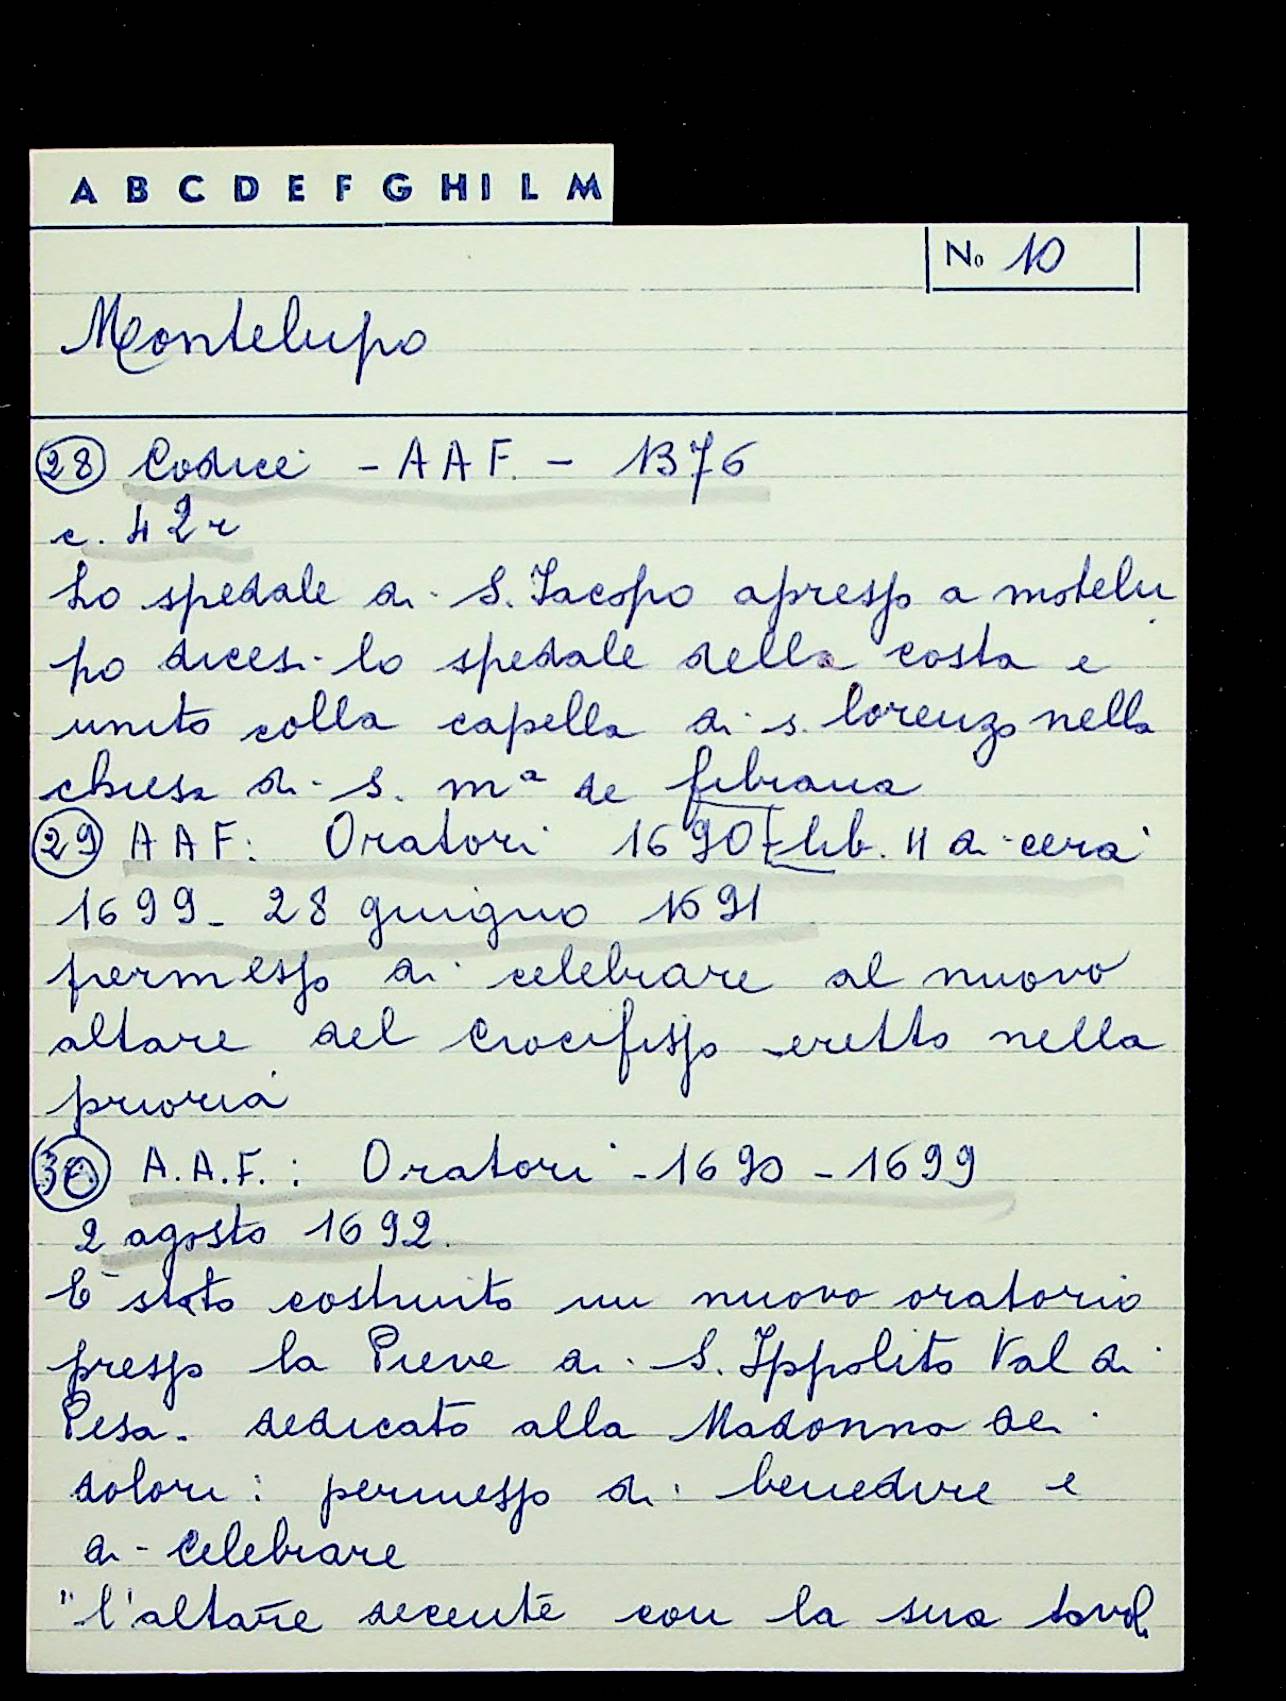 A B C D E F G H I L M
No 10
Montelupo
28 Codice - AAF. - 1376
c. 42r
Lo spedale di S. Jacopo apresso a motelu
po dicesi lo spedale della costa e
unito colla capella di s. lorenzo nella
chiesa di S. mª de fibiana
29 AAF: Oratori 1690 lib. 4 di cera
1699 - 28 giugno 1691
permesso di celebrare al nuovo
altare del Crocifisso eretto nella
prioria
30 A.A.F.: Oratori - 1690 - 1699
2 agosto 1692.
E' stato costruito un nuovo oratorio
presso la Pieve di S. Ippolito Val di
Pesa. dedicato alla Madonna dei
dolori: permesso di benedire e
di celebrare
"l'altare decente con la sua